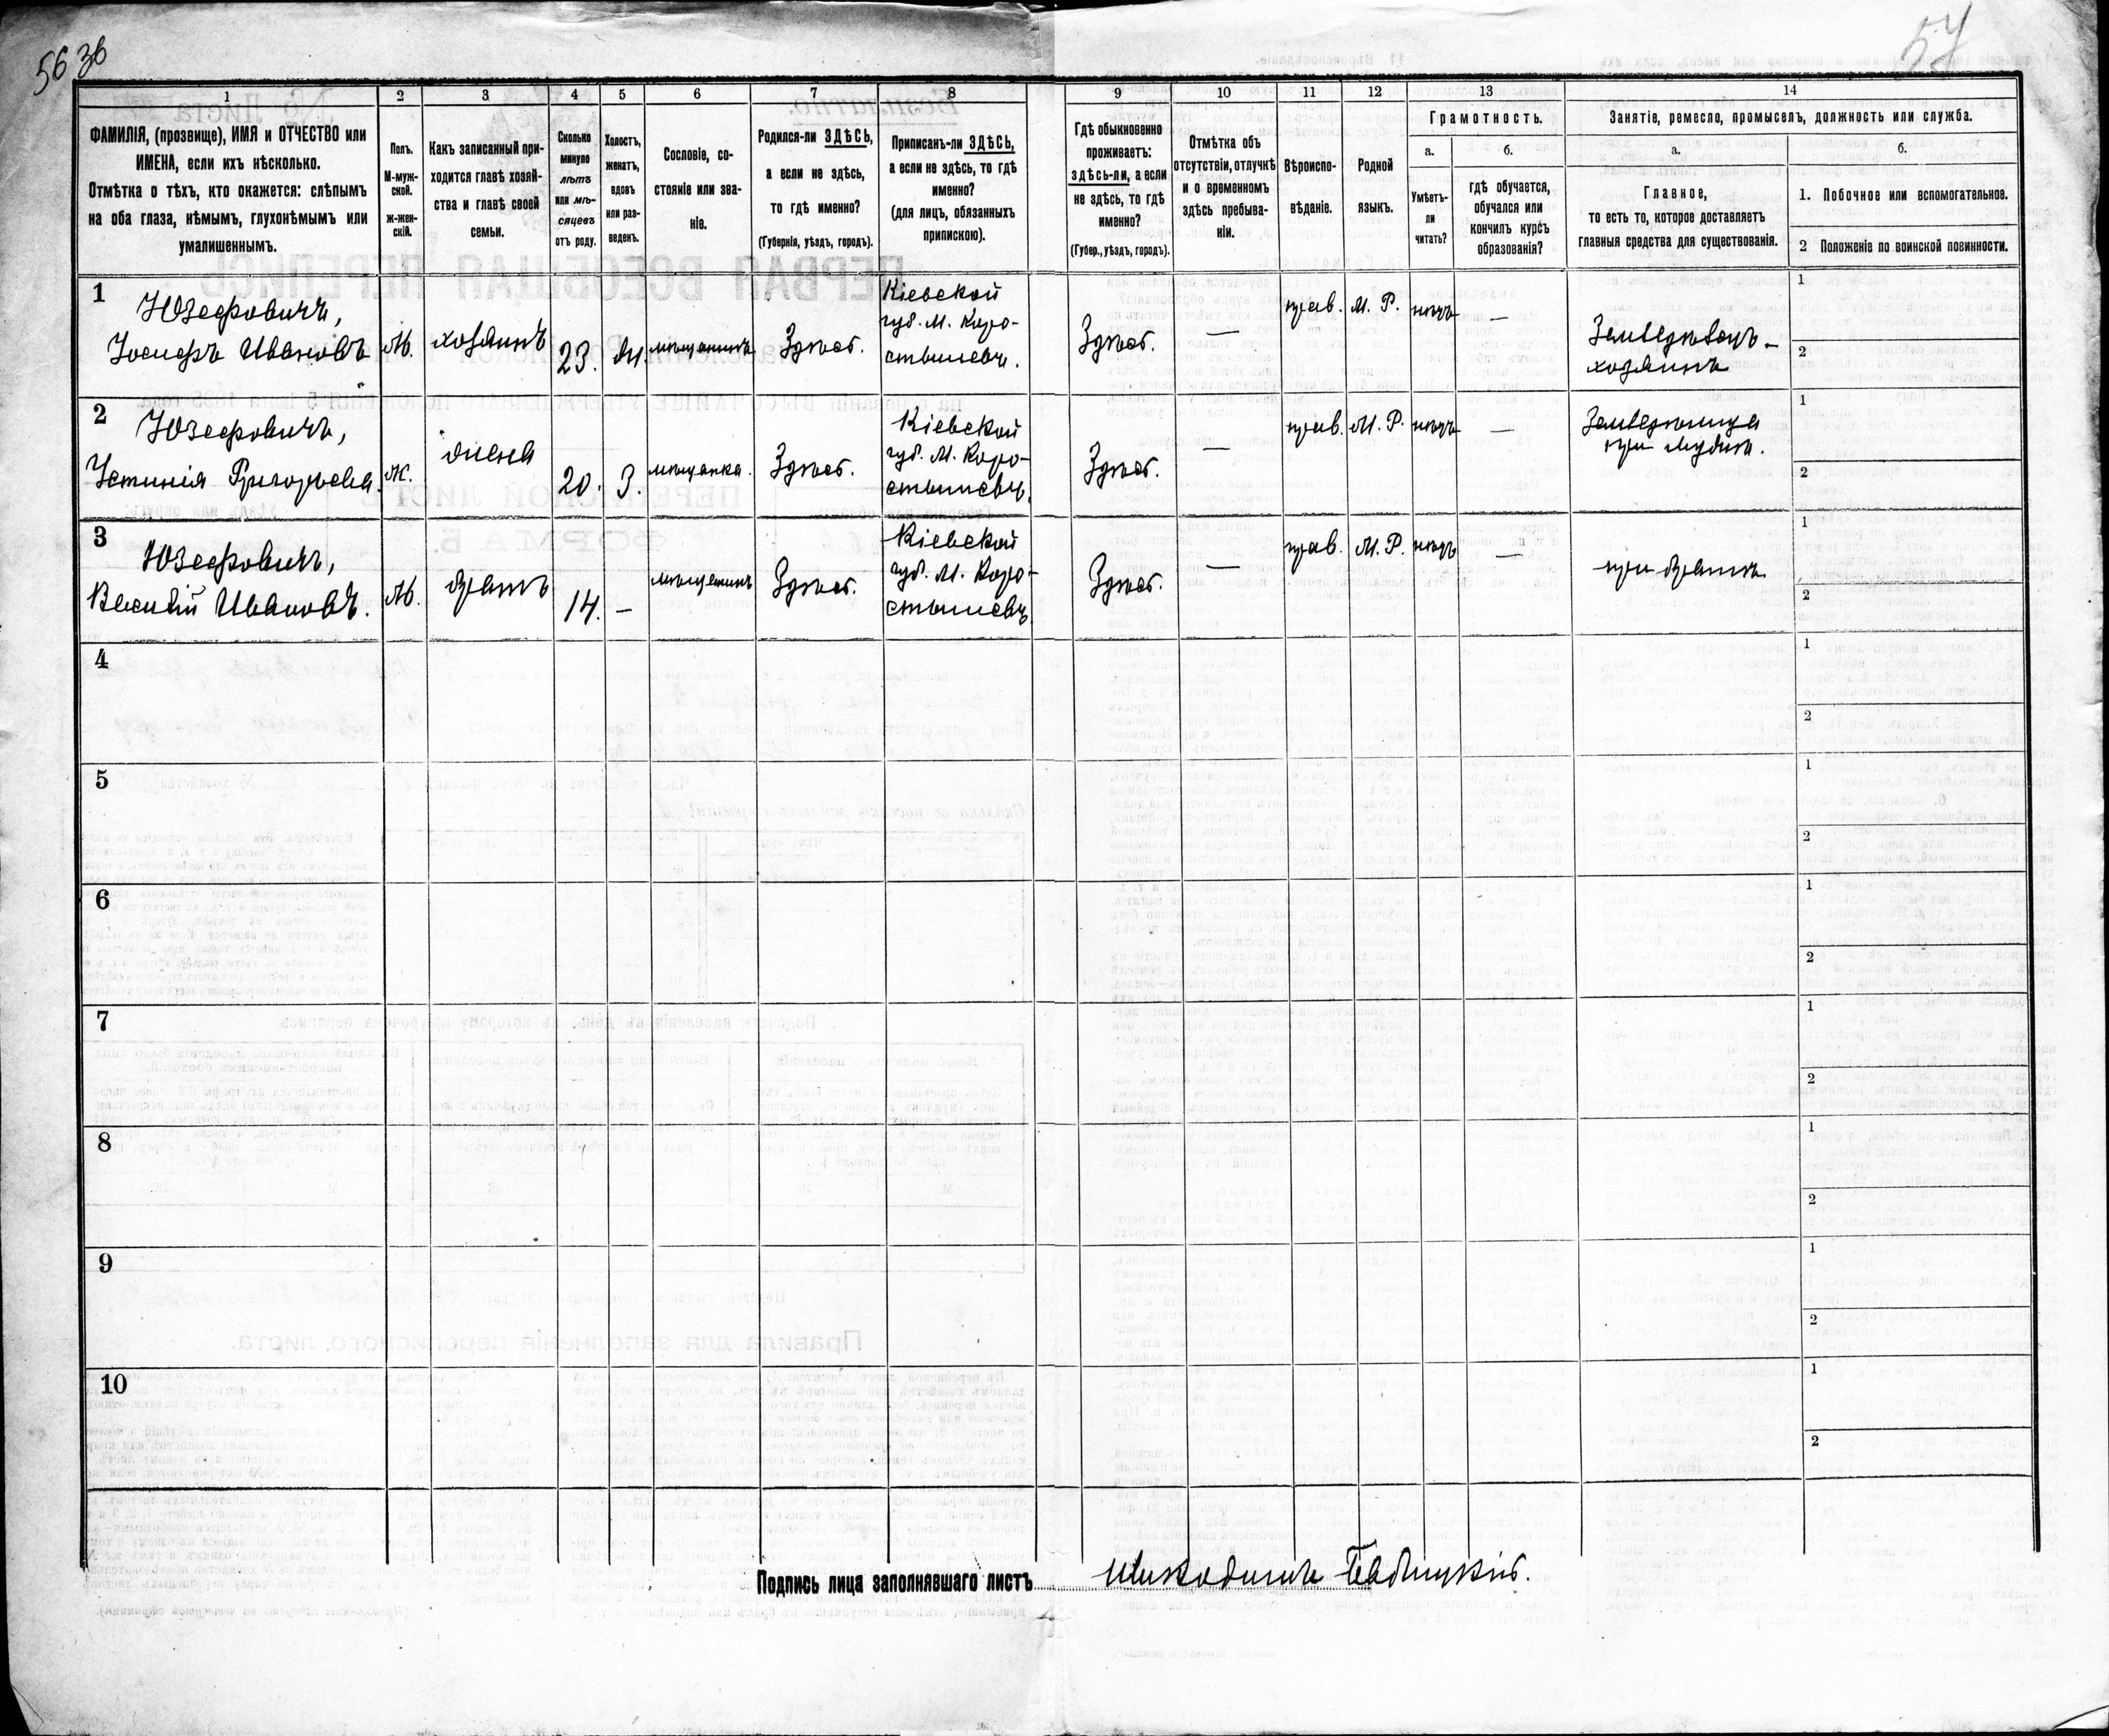 56 зв
57
1
2
3
4
5
6
7
8
9
10
11
12
13
14
ФАМИЛІЯ, (прозвище), ИМЯ и ОТЧЕСТВО или
ИМЕНА, если ихъ нѣсколько.
Отмѣтка о тѣхъ, кто окажется: слѣпымъ
на оба глаза, нѣмымъ, глухонѣмымъ или
умалишеннымъ.
Полъ.
М-муж-
ской.
ж-жен-
скій.
Какъ записанный при-
ходится главѣ хозяй-
ства и главѣ своей
семьи.
Сколько
минуло
лѣтъ
или мѣ-
сяцевъ
отъ роду.
Холостъ,
женатъ,
вдовъ
или раз-
веденъ.
Сословіе, со-
стояніе или зва-
ніе.
Родился-ли ЗДѢСЬ,
а если не здѣсь,
то гдѣ именно?
(Губернія, уѣздъ, городъ).
Приписанъ-ли ЗДѢСЬ,
а если не здѣсь, то гдѣ
именно?
(для лицъ, обязанныхъ
припискою).
Гдѣ обыкновенно
проживаетъ:
здѣсь-ли, а если
не здѣсь, то гдѣ
именно?
(Губер., уѣздъ, городъ).
Отмѣтка объ
отсутствіи, отлучкѣ
и о временномъ
здѣсь пребыва-
ніи.
Вѣроиспо-
вѣданіе.
Родной
языкъ.
Грамотность.
а.
Умѣетъ-
ли
читать?
б.
гдѣ обучается,
обучался или
кончилъ курсъ
образованія?
Занятіе, ремесло, промыселъ, должность или служба.
а.
Главное,
то есть то, которое доставляетъ
главныя средства для существованія.
б.
1. Побочное или вспомогательное.
2 Положеніе по воинской повинности.
1
Юзефовичъ,
Іосифъ Ивановъ
М.
хозяинъ
23.
Ж.
мѣщанинъ
Здѣсь.
Кіевской
губ. М. Коро-
стышевъ.
Здѣсь.
—
прав.
М. Р.
нѣтъ
—
Земледѣлецъ-
хозяинъ
1
2
2
Юзефовичъ,
Устинія Григорьева.
Ж.
жена
20.
З.
мѣщанка.
Здѣсь.
Кіевской
губ. М. Коро-
стышевъ.
Здѣсь.
—
прав.
М. Р.
нѣтъ
—
при мужѣ.
1
2
3
Юзефовичъ,
Василій Ивановъ.
М.
братъ
14.
—
мѣщанинъ
Здѣсь.
Кіевской
губ. М. Коро-
стышевъ
Здѣсь.
—
прав.
М. Р.
нѣтъ
—
при братѣ
1
2
4
1
2
5
1
2
6
1
2
7
1
2
8
1
2
9
1
2
10
1
2
Подпись лица заполнявшаго листъ